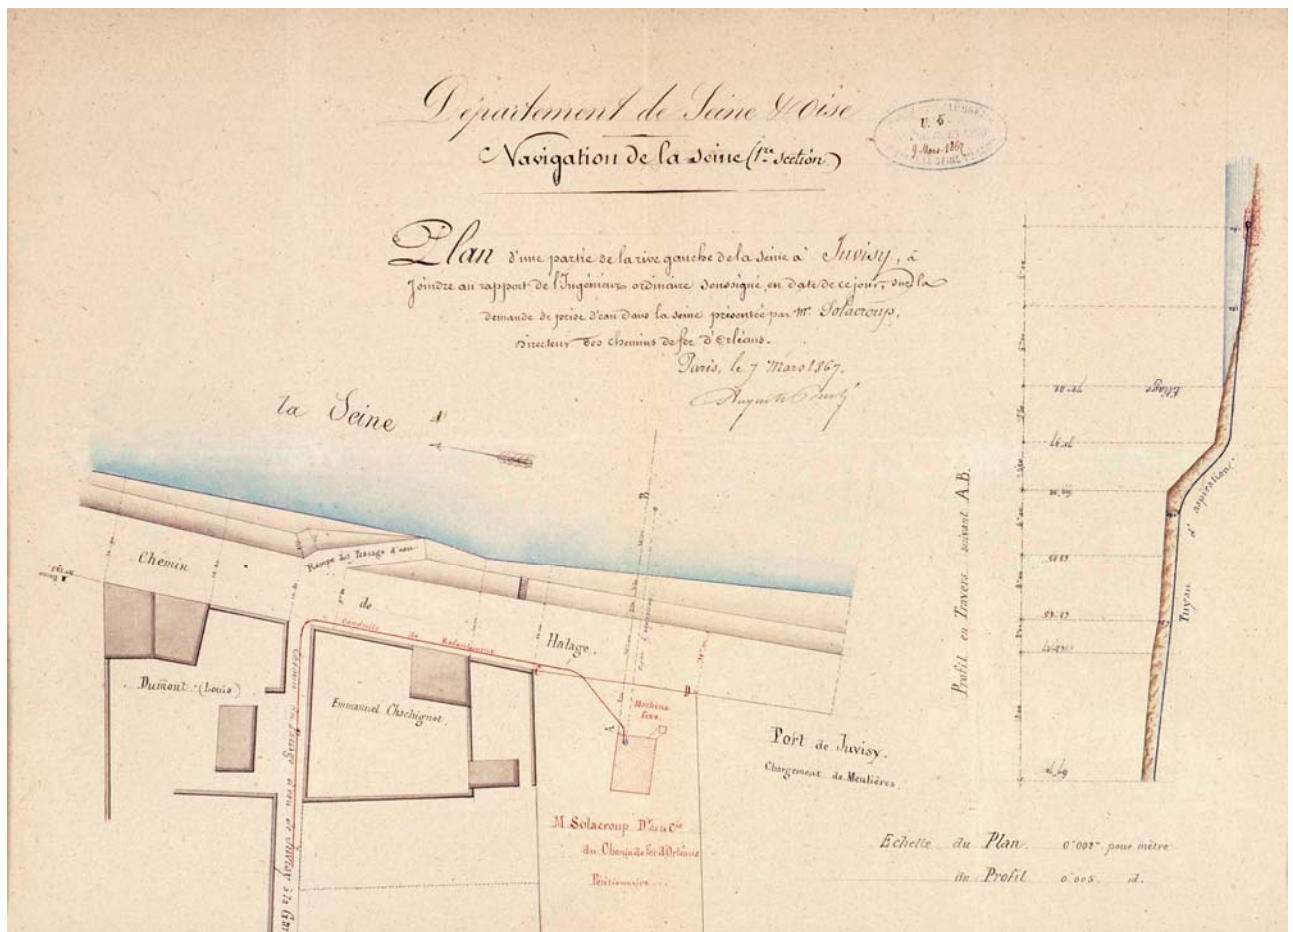 Département de Seine & Oise
Navigation de la Seine (1re section)
U. 5.
9 Mars 1867
Plan d'une partie de la rive gauche de la Seine à Juvisy, à
joindre au rapport de l'Ingénieur ordinaire soussigné, en date de ce jour, sur la
demande de prise d'eau dans la Seine présentée par Mr. Solacroup,
Directeur des chemins de fer d'Orléans.
Paris, le 7 Mars 1867.
la Seine
B
Chemin
Rampe du Passage d'eau
de
Halage.
Conduite de Refoulement
Dumont (Louis)
Emmanuel Chachignot.
Chemin du Passage d'eau de Juvisy à la
Machine
fixe.
A
Port de Juvisy.
Chargement de Meulières.
M. Solacroup Dr de la Cie
du Chemin de fer d'Orléans
Pétitionnaire
Profil en Travers suivant A.B.
Etiage
Tuyau d'aspiration
Echelle du Plan 0m002m pour mètre
du Profil 0m005 id.